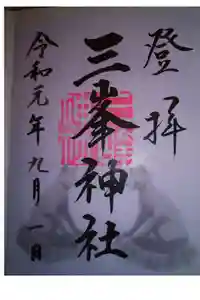 登拝
三峯神社
令和元年九月一日